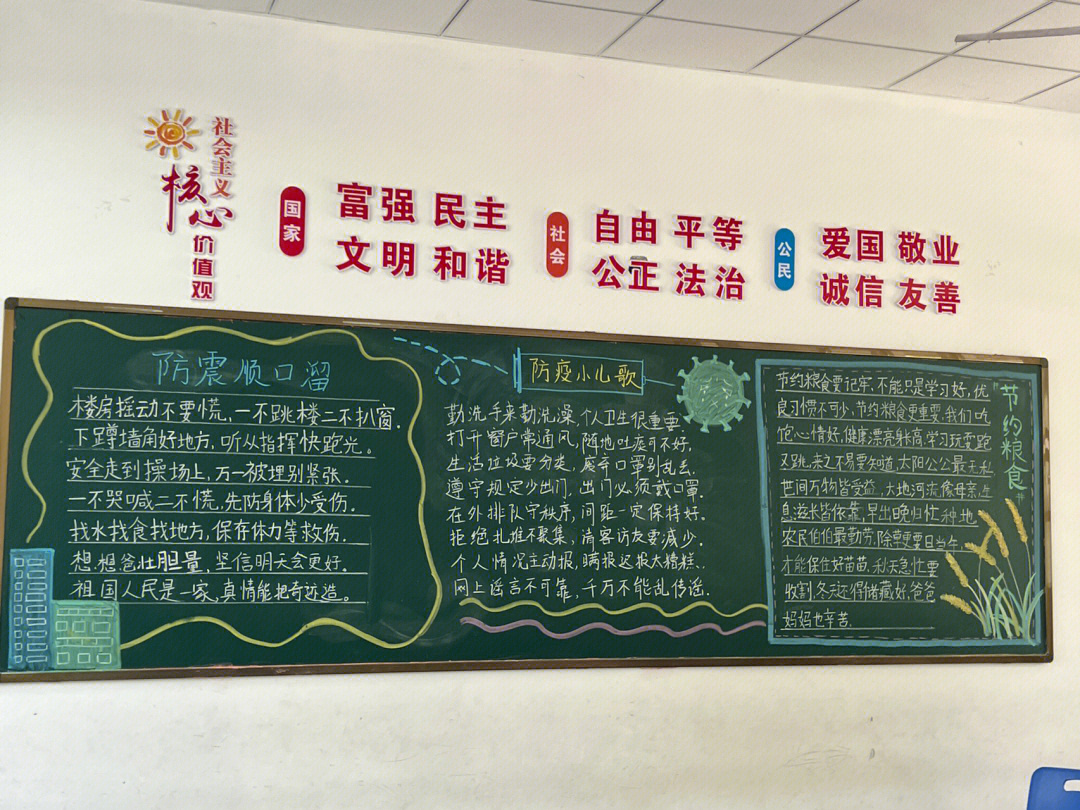 社会主义
核心
价值观
国家
富强 民主
文明 和谐
社会
自由 平等
公正 法治
公民
爱国 敬业
诚信 友善
防震顺口溜
楼房摇动不要慌,一不跳楼二不扒窗.
下蹲墙角好地方,听从指挥快跑光。
安全走到操场上,万一被埋别紧张.
一不哭喊二不慌,先防身体少受伤.
找水找食找地方,保存体力等救伤.
想想爸壮胆量,坚信明天会更好.
祖国人民是一家,真情能把奇迹造。
防疫小儿歌
勤洗手来勤洗澡,个人卫生很重要.
打开窗户常通风,随地吐痰可不好,
生活垃圾要分类,废弃口罩别乱丢.
遵守规定少出门,出门必须戴口罩.
在外排队守秩序,间距一定保持好。
拒绝扎堆不聚集,请客访友要减少.
个人情况主动报,瞒报迟报太糟糕.
网上谣言不可靠,千万不能乱传谣.
节约粮食
节约粮食要记牢,不能只是学习好,优
良习惯不可少,节约粮食更重要,我们吃
饱心情好,健康漂亮身长高,学习玩耍跑
又跳,来之不易要知道,太阳公公最无私
世间万物皆受益,大地河流像母亲,生
息滋长皆依靠,早出晚归忙种地
农民伯伯最勤劳,除草更要日当午,
才能保住好苗苗,秋天急忙要
收割,冬天还得储藏好,爸爸
妈妈也辛苦.